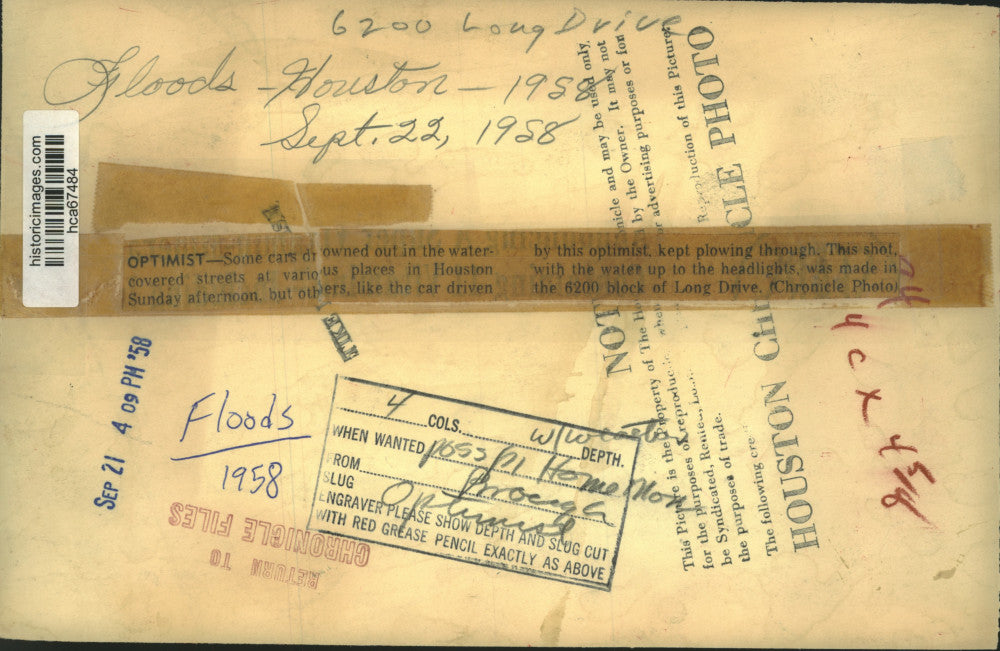 6200 Long Drive
Floods - Houston - 1958
Sept. 22, 1958
historicimages.com
hca67484
OPTIMIST—Some cars drowned out in the water-
covered streets at various places in Houston
Sunday afternoon, but others, like the car driven
by this optimist, kept plowing through. This shot,
with the water up to the headlights, was made in
the 6200 block of Long Drive. (Chronicle Photo)
SEP 21 4 09 PM '58
Floods
1958
RETURN TO
CHRONICLE FILES
4 COLS.
DEPTH.
WHEN WANTED poss p1 Home Mon
FROM
SLUG Optimist
ENGRAVER PLEASE SHOW DEPTH AND SLUG CUT
WITH RED GREASE PENCIL EXACTLY AS ABOVE
NOT
This Picture is the Property of The
for the purposes of reproduc
be Syndicated, Rented,
the purposes of trade.
The following cre
HOUSTON
nicle and may be used only
by the Owner. It may not
advertising purposes or for
Reproduction of this Picture
PHOTO
4 c x 4 5/8